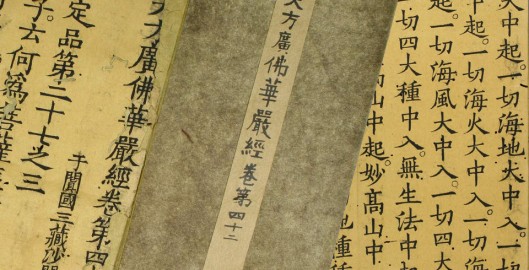 大中起。一切海地大中入一
中起。一切海火大中入一切
起。一切海風大中入一切四
一切四大種中入。無生法中起
高山中起。妙高山中
地種種
大方廣佛華嚴經卷第四十二
大方廣佛華嚴經卷第四
于闐國三藏沙門
定品第二十七之三
子。云何為菩薩